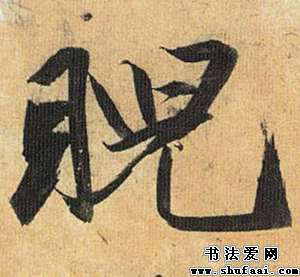 睨
书法爱网
www.shufaai.com